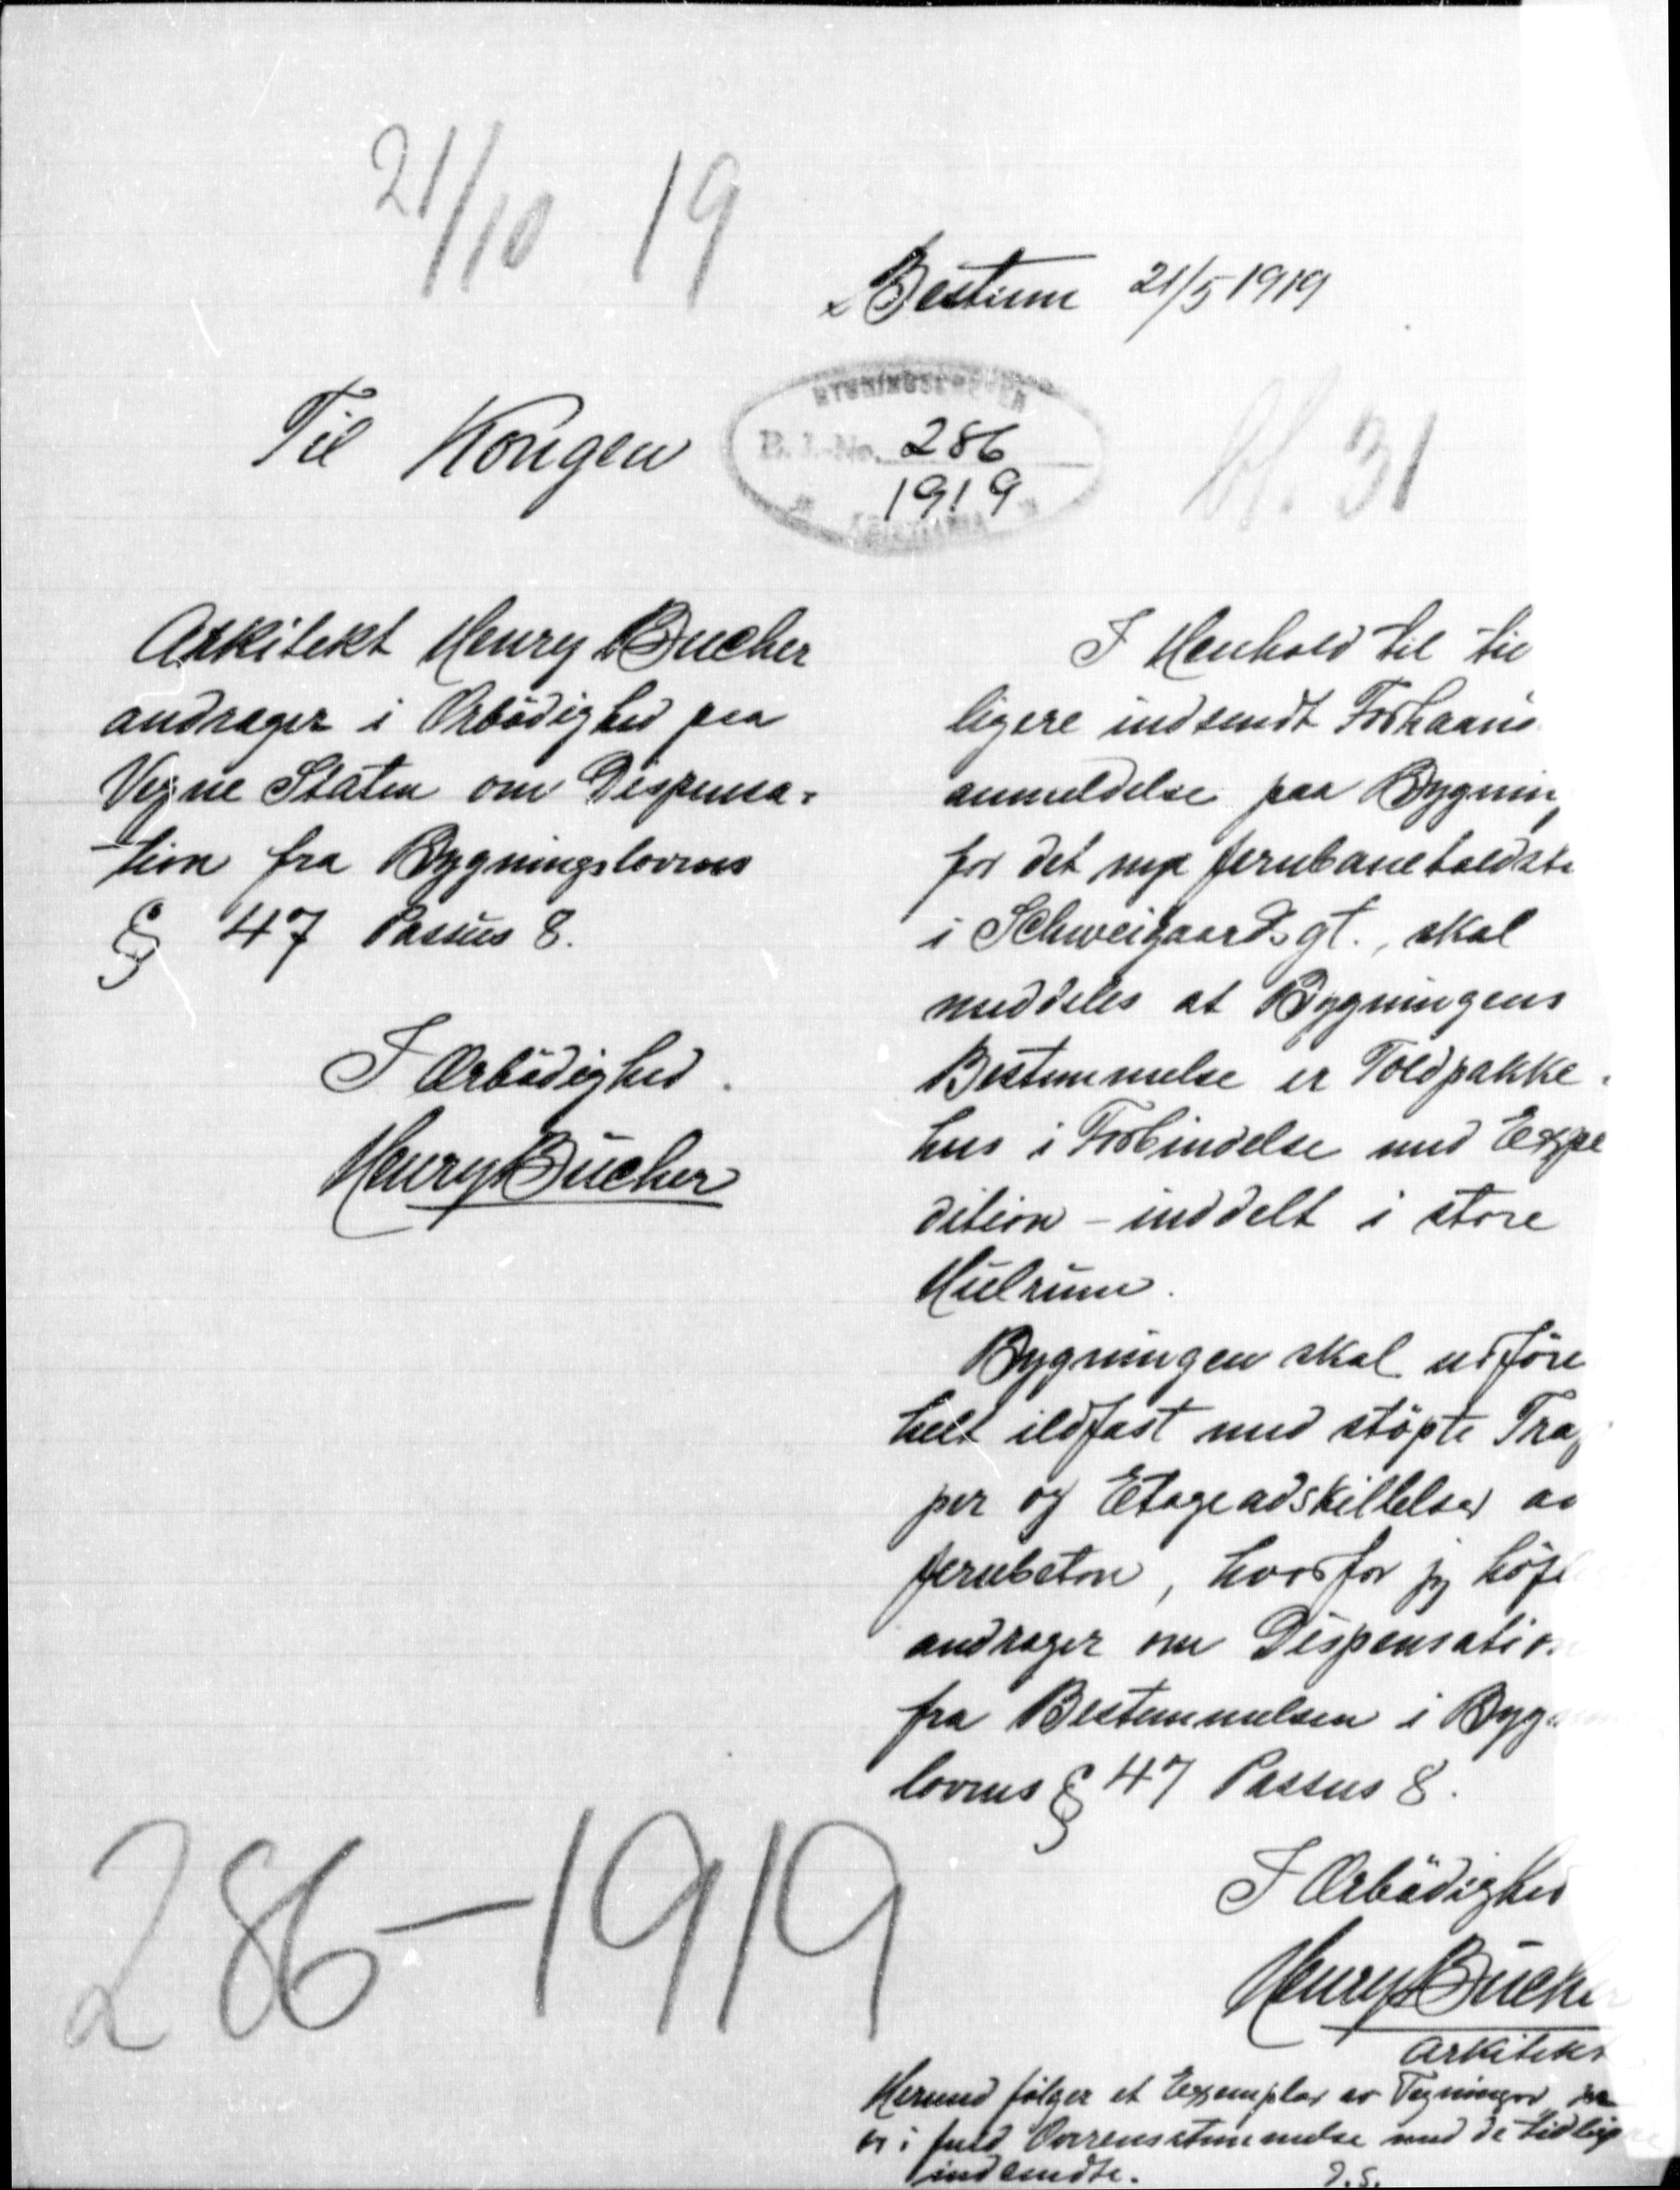 21/10 19
Bestum 21/5 1919
Til Kongen
B. J.-No. 286
1919
KRISTIANIA
bl. 31
Arkitekt Henry Bucher
andrager i Ærbödighed paa
Vegne Staten om Dispensa-
tion fra Bygningslovens
§ 47 Passus 8.
I Ærbödighed.
Henry Bucher
I Henhold til tid
ligere indsendt Forhaands
anmeldelse paa Bygnin
for det nye Jernbanetoldste
i Schweigaardsgt., skal
meddeles at Bygningens
Bestemmelse er Toldpakke-
hus i Forbindelse med Expe
dition - inddelt i store
Hulrum.
Bygningen skal udföre
helt ildfast med stöpte Trap
per og Etageadskillelser av
Jernbeton, hvorfor jeg höfl
andrager om Dispensation
fra Bestemmelsen i Bygn
lovens § 47 Passus 8.
I Ærbödighed
Henry Bucher
Arkitekt
Hermed fölger et Exemplar av Tegninger som
er i fuld Overensstemmelse med de tidligere
indsendte. D.S.
286-1919